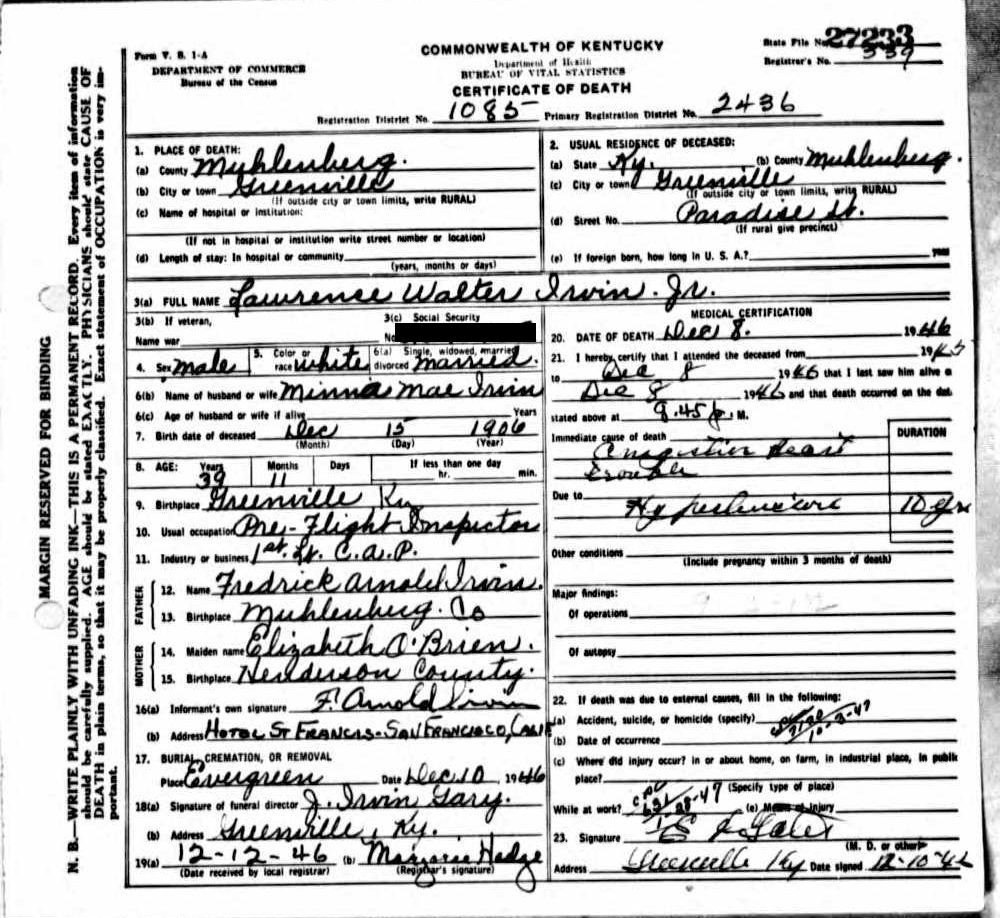 Form V. S. 1-A
DEPARTMENT OF COMMERCE
Bureau of the Census
COMMONWEALTH OF KENTUCKY
Department of Health
BUREAU OF VITAL STATISTICS
CERTIFICATE OF DEATH
State File No. 27233
Registrar's No. 339
Registration District No. 1085 Primary Registration District No. 2436
MARGIN RESERVED FOR BINDING
N. B.—WRITE PLAINLY WITH UNFADING INK—THIS IS A PERMANENT RECORD. Every item of information
should be carefully supplied. AGE should be stated EXACTLY. PHYSICIANS should state CAUSE OF
DEATH in plain terms, so that it may be properly classified. Exact statement of OCCUPATION is very im-
portant.
1. PLACE OF DEATH:
(a) County Muhlenberg.
(b) City or town Greenville
(If outside city or town limits, write RURAL)
(c) Name of hospital or institution:
(If not in hospital or institution write street number or location)
(d) Length of stay: In hospital or community
(years, months or days)
2. USUAL RESIDENCE OF DECEASED:
(a) State Ky. (b) County Muhlenberg.
(c) City or town Greenville
(If outside city or town limits, write RURAL)
(d) Street No. Paradise St.
(If rural give precinct)
(e) If foreign born, how long in U. S. A.? years
3(a) FULL NAME Lawrence Walter Irvin. Jr.
3(b) If veteran,
Name war
3(c) Social Security
No.
4. Sex male 5. Color or race white 6(a) Single, widowed, married, divorced married.
6(b) Name of husband or wife Minna Mae Irvin
6(c) Age of husband or wife if alive Years
7. Birth date of deceased Dec 15 1906
(Month) (Day) (Year)
8. AGE: Years 39 Months 11 Days If less than one day hr. min.
9. Birthplace Greenville Ky
10. Usual occupation Pre-Flight Inspector
11. Industry or business 1st. Lt. C.A.P.
FATHER
12. Name Fredrick Arnold Irvin.
13. Birthplace Muhlenberg. Co
MOTHER
14. Maiden name Elizabeth O'Brien.
15. Birthplace Henderson County.
16(a) Informant's own signature F. Arnold Irvin
(b) Address HOTEL ST FRANCIS-SAN FRANCISCO, CALIF
17. BURIAL, CREMATION, OR REMOVAL
Place Evergreen Date Dec. 10 1946
18(a) Signature of funeral director J. Irvin Gary.
(b) Address Greenville, Ky.
19(a) 12-12-46 (b) Marjorie Hedge
(Date received by local registrar) (Registrar's signature)
MEDICAL CERTIFICATION
20. DATE OF DEATH Dec 8. 1946
21. I hereby certify that I attended the deceased from 1945
to Dec 8 1946 that I last saw him alive o
Dec 8 1946 and that death occurred on the dat
stated above at 9.45 p. M.
Immediate cause of death DURATION
Congestive Heart
trouble
Due to Hypertension 10 yrs
Other conditions
(Include pregnancy within 3 months of death)
Major findings:
Of operations
Of autopsy
22. If death was due to external causes, fill in the following:
(a) Accident, suicide, or homicide (specify)
(b) Date of occurrence
(c) Where did injury occur? in or about home, on farm, in industrial place, in public
place?
(Specify type of place)
While at work? (e) Means of injury
23. Signature
(M. D. or other)
Address Greenville Ky Date signed 12-10-46